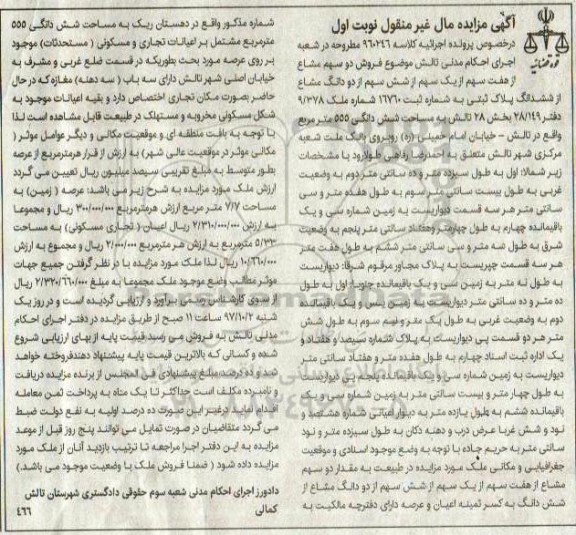 آگهی مزایده مال غیر منقول نوبت اول
درخصوص پرونده اجرائیه کلاسه ۹۶۰۲۴۶ مطروحه در شعبه
اجرای احکام مدنی تالش موضوع فروش دو سهم مشاع
از هفت سهم از یک سهم از شش سهم از دو دانگ مشاع
از ششدانگ پلاک ثبتی به شماره ثبت ۱۶۷۶۰ شماره ملک ۹/۳۷۸
دفتر ۲۸/۱۴۹ بخش ۲۸ تالش به مساحت شش دانگی ۵۵۵ متر مربع
واقع در تالش – خیابان امام خمینی (ره) روبروی بانک ملت شعبه
مرکزی شهر تالش متعلق به احمدرضا رفاهی طولارود با مشخصات
زیر شمالا: اول به طول سیزده متر و ده سانتی متر دوم به وضعیت
غربی به طول بیست سانتی متر سوم به طول هفده متر و سی
سانتی متر هر سه قسمت دیواریست به زمین شماره سی و یک
باقیمانده چهارم به طول چهارمتر وهفتاد سانتی متر پنجم به وضعیت
شرق به طول سه متر و سی سانتی متر ششم به طول هفت متر
هر سه قسمت چپریست به پلاک مجاور مرقوم شرقا: دیواریست
به طول نه متر به زمین سی و یک باقیمانده جنوبا: اول به طول
ده متر و ده سانتی متر دیواریست به زمین سی و یک باقیمانده
دوم به وضعیت غربی به طول یک متر و نیم سوم به طول شش
متر هر دو قسمت پی دیواریست به پلاک شماره سیصد و هفتاد و
یک اداره ثبت اسناد چهارم به طول هفده متر و هفتاد سانتی متر
دیواریست به زمین شماره سی و یک باقیمانده پنجم پی دیواریست
به طول چهار متر و بیست سانتی متر به زمین شماره سی و یک
باقیمانده ششم به طول یازده متر به دیوار اعیانی شماره هشتصد و
نود و شش غربا عرض درب و دهنه دکان به طول سیزده متر و نود
سانتی متر به حریم جاده با توجه به وضع موجود اسنادی و موقعیت
جغرافیایی و مکانی ملک مورد مزایده در طبیعت به مقدار دو سهم
مشاع از هفت سهم از یک سهم از شش سهم از دو دانگ مشاع از
شش دانگ به کسر ثمینه اعیان و عرصه دارای دفترچه مالکیت به
شماره مذکور واقع در دهستان ریک به مساحت شش دانگی ۵۵۵
مترمربع مشتمل بر اعیانات تجاری و مسکونی ( مستحدثات) موجود
بر روی عرصه مورد بحث بطوریکه در قسمت ضلع غربی و مشرف به
خیابان اصلی شهر تالش دارای سه باب ( سه دهنه) مغازه که در حال
حاضر بصورت مکان تجاری اختصاص دارد و بقیه اعیانات موجود به
شکل مسکونی مخروبه و مستهلک در طبیعت قابل مشاهده است لذا
با توجه به بافت منطقه ای و موقعیت مکانی و دیگر عوامل موثر (
مکانی موثر در موقعیت عالی شهر) به ارزش از قرار هرمترمربع از عرصه
بطور متوسط به مبلغ تقریبی سیصد میلیون ریال تعیین می گردد
ارزش ملک مورد مزایده به شرح زیر می باشد: عرصه ( زمین) به
مساحت ۷/۷ متر مربع ارزش هرمترمربع ۳۰۰/۰۰۰/۰۰۰ ریال و مجموعا
به ارزش ۲/۳۱۰/۰۰۰/۰۰۰ ریال اعیان ( تجاری مسکونی) به مساحت
۵/۳۳ مترمربع به ارزش هر مترمربع ۲/۰۰۰/۰۰۰ ریال و مجموع به ارزش
۱۰/۶۶۰/۰۰۰ ریال لذا ملک مورد مزایده با در نظر گرفتن جمیع جهات
موثر مطالب وضع موجود ملک مجموعا به مبلغ ۲/۳۲۰/۶۶۰/۰۰۰ ریال
از سوی کارشناس رسمی برآورد و ارزیابی گردیده است و در روز یک
شنبه ۹۷/۱۰/۲ ساعت ۱۱ صبح از طریق مزایده در دفتر اجرای احکام
مدنی تالش به فروش می رسد قیمت پایه از بهای ارزیابی شروع
شده و کسانی که بالاترین قیمت پایه پیشنهاد دهندفروخته خواهد
شد و ده درصد مبلغ پیشنهادی فی المجلس از برنده مزایده دریافت
و نامبرده مکلف است حداکثر تا یک ماه به پرداخت ثمن معامله
اقدام نماید درغیر این صورت ده درصد اولیه به نفع دولت ضبط
می گردد متقاضیان در صورت تمایل می توانند پنج روز قبل از موعد
مزایده به این دفتر اجرا مراجعه تا ترتیب بازدید آنان از ملک مورد
مزایده داده شود ( ضمنا فروش ملک با وضعیت موجود می باشد.)
دادورز اجرای احکام مدنی شعبه سوم حقوقی دادگستری شهرستان تالش
کمالی
۴۶۶